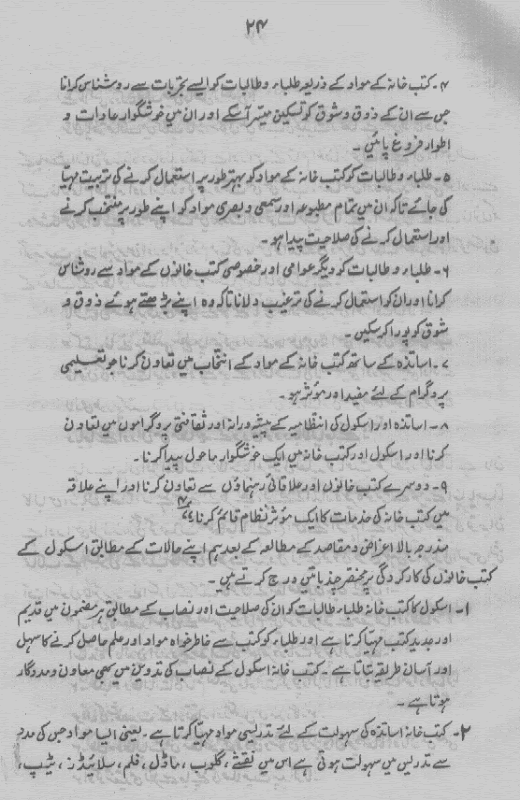 ۲۴
۴۔ کتب خانہ کے مواد کے ذریعہ طلباء و طالبات کو ایسے تجربات سے روشناس کرانا
جس سے ان کے ذوق و شوق کو تسکین میسّر آسکے اور ان میں خوشگوار عادات و
اطوار فروغ پائیں۔
۵۔ طلباء و طالبات کو کتب خانہ کے مواد کو بہتر طور پر استعمال کرنے کی تربیت مہیّا
کی جائے تاکہ ان میں تمام مطبوعہ اور سمعی و بصری مواد کو اپنے طور پر منتخب کرنے
اور استعمال کرنے کی صلاحیت پیدا ہو۔
۶۔ طلباء و طالبات کو دیگر عوامی اور خصوصی کتب خانوں کے مواد سے روشناس
کرانا اور ان کو استعمال کرنے کی ترغیب دلانا تاکہ وہ اپنے بڑھتے ہوئے ذوق و
شوق کو پورا کر سکیں۔
۷۔ اساتذہ کے ساتھ کتب خانہ کے مواد کے انتخاب میں تعاون کرنا جو تعلیمی
پروگرام کے لئے مفید اور مؤثر ہو۔
۸۔ اساتذہ اور اسکول کی انتظامیہ کے پیشہ ورانہ اور ثقافتی پروگراموں میں تعاون
کرنا اور اسکول اور کتب خانہ میں ایک خوشگوار ماحول پیدا کرنا۔
۹۔ دوسرے کتب خانوں اور علاقائی رہنماؤں سے تعاون کرنا اور اپنے علاقہ
میں کتب خانہ کی خدمات کا ایک مؤثر نظام قائم کرنا۔"
مندرجہ بالا اغراض و مقاصد کے مطالعہ کے بعد ہم اپنے حالات کے مطابق اسکول کے
کتب خانوں کی کارکردگی پر مختصر چند باتیں درج کرتے ہیں۔
۱۔ اسکول کا کتب خانہ طلباء طالبات کو ان کی صلاحیت اور نصاب کے مطابق ہر مضمون میں قدیم
اور جدید کتب مہیّا کرتا ہے اور طلباء کو کتب سے خاطر خواہ مواد اور علم حاصل کرنے کا سہل
اور آسان طریقہ بتاتا ہے۔ کتب خانہ اسکول کے نصاب کی تدوین میں بھی معاون و مددگار
ہوتا ہے۔
۲۔ کتب خانہ اساتذہ کی سہولت کے لئے تدریسی مواد مہیّا کرتا ہے۔ یعنی ایسا مواد جس کی مدد
سے تدریس میں سہولت ہوتی ہے اس میں نقشے، گلوب، ماڈل، فلم، سلائیڈز، ٹیپ،